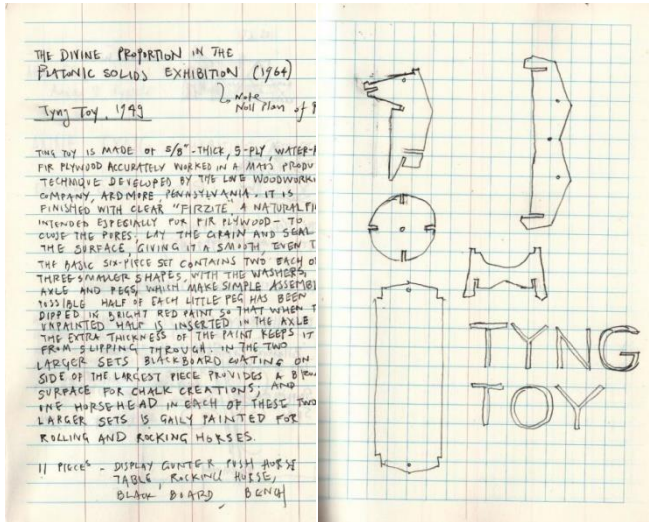 THE DIVINE PROPORTION IN THE
PLATONIC SOLIDS EXHIBITION (1964)
Note
Tyng Toy, 1949
Noll Plan of
TING TOY IS MADE OF 5/8"-THICK, 5-PLY, WATER-
FIR PLYWOOD ACCURATELY WORKED IN A MASS PRODU
TECHNIQUE DEVELOPED BY THE LOVE WOODWORKI
COMPANY, ARDMORE, PENNSYLVANIA. IT IS
FINISHED WITH CLEAR "FIRZITE" A NATURAL FI
INTENDED ESPECIALLY FOR FIR PLYWOOD - TO
CLOSE THE PORES, LAY THE GRAIN AND SEAL
THE SURFACE, GIVING IT A SMOOTH, EVEN T
THE BASIC SIX-PIECE SET CONTAINS TWO EACH OF
THREE SMALLER SHAPES, WITH THE WASHERS,
AXLE AND PEGS, WHICH MAKE SIMPLE ASSEMBL
POSSIBLE HALF OF EACH LITTLE PEG HAS BEEN
DIPPED IN BRIGHT RED PAINT SO THAT WHEN T
UNPAINTED HALF IS INSERTED IN THE AXLE
THE EXTRA THICKNESS OF THE PAINT KEEPS IT
FROM SLIPPING THROUGH. IN THE TWO
LARGER SETS BLACKBOARD COATING ON
SIDE OF THE LARGEST PIECE PROVIDES A
SURFACE FOR CHALK CREATIONS; AND
ONE HORSEHEAD IN EACH OF THESE TWO
LARGER SETS IS GAILY PAINTED FOR
ROLLING AND ROCKING HORSES.
11 PIECES - DISPLAY PUSH HORSE
TABLE, ROCKING HORSE,
BLACK BOARD BENCH
TYNG
TOY